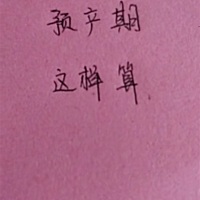 预产期
这样算